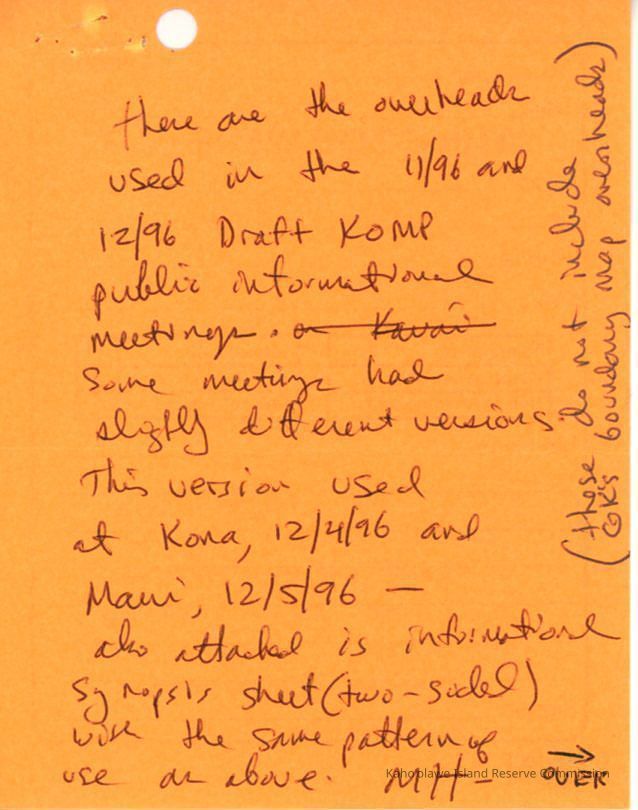 there are the overheads
used in the 11/96 and
12/96 Draft KOMP
public informational
meetings. on Kauai
Some meetings had
slightly different versions.
This version used
at Kona, 12/4/96 and
Maui, 12/5/96 —
also attached is informational
synopsis sheet (two-sided)
with the same pattern of
use as above. MH-
OVER
(these do not include
GK's boundary map overheads)
Kahoʻolawe Island Reserve Commission